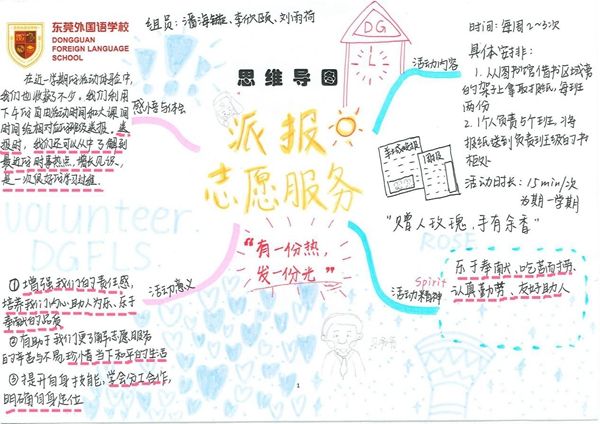 东莞外国语学校
DONGGUAN
FOREIGN LANGUAGE
SCHOOL
组员:潘海镟、李欣颐、刘雨荷
DG
时间:每周2~3次
活动内容
具体安排:
1.从图书馆借书区域旁
的架子上拿取报纸,每班
两份
2.1个人负责5个班,将
报纸送到负责班级的书
柜处
活动时长:15min/次
为期一学期
思维导图
派报
志愿服务
"有一份热,
发一份光"
感悟与体会
在近一学期的活动体验中,
我们也收获了不少,我们利用
下午的自由活动时间和大课间
时间给相对应的班级送报,送
报时,我们还可以从中了解到
最近的时事热点,增长见识,
是一次很好的学习过程.
volunteer
DGFLS
活动意义
①增强我们的责任感,
培养我们内心助人为乐、乐于
奉献的品质
②有助于我们更了解志愿服务
的辛苦与不易,珍惜当下和平的生活
③提升自身技能,学会分工合作,
明确自身定位
"赠人玫瑰,手有余香"
ROSE
Spirit
活动精神
乐于奉献、吃苦而耐劳、
认真勤劳、友好助人
1